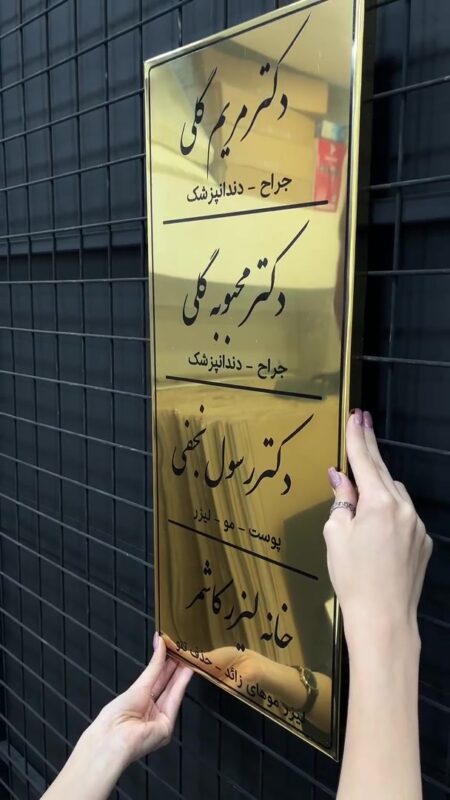 دکتر مریم گلی
جراح - دندانپزشک
دکتر محبوبه گلی
جراح - دندانپزشک
دکتر رسول نجفی
پوست - مو - لیزر
خانه لیزر کاشمر
لیزر موهای زائد - حذف تتو